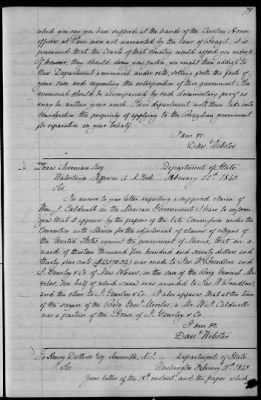 which you say you have suffered at the hands of the Custom House
officers at Para were not warranted by the laws of Brazil, it is
presumed that the Courts of that Country would afford you redress.
If however, they should deny you justice, you might then address to
this Department a memorial under oath, setting forth the facts of
your case and requesting the interposition of this government. The
memorial should be accompanied by such documentary proof as
may be within your reach. This department will then take into
consideration the propriety of applying to the Brazilian government
for reparation in your behalf.
I am &c.
Danl. Webster
Sherman Esq
Department of State
Watertown Jefferson Co. N. York
February 20th 1843
Sir
In answer to your letter regarding a supposed claim of
Wm. J. Caldwell on the Mexican Government I have to inform
you that it appears by the papers of the late Commission under the
Convention with Mexico for the adjustment of claims of citizens of
the United States against the government of Mexico, that an a
ward of thirteen thousand five hundred and seventy dollars and
thirty five cents was made to
P. Gourley & Co of New Orleans, in the case of the Brig General Mo
relos, one half of which same was awarded to
and the other to P. Gourley & Co. It also appears that at the time
of the seizure of the Brig Genl Morelos, a Mr. W. J. Caldwell
was a partner of the firm of P. Gourley & Co.
I am &c.
Danl. Webster
To Henry
Department of State
Sir
Washington February 21st 1843
Your letter of the instant, and the paper which